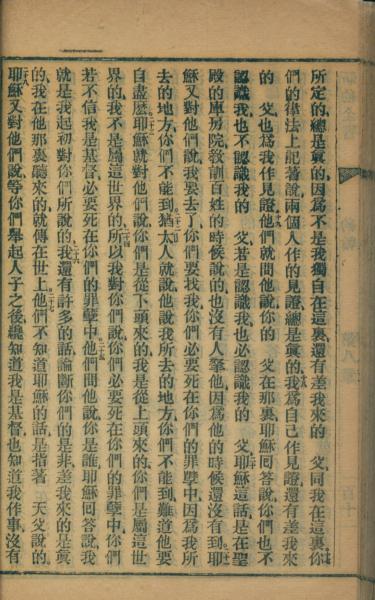 所定的、總是眞的、因爲不是我獨自在這裏、還有差我來的　父同我在這裏、十七你
們的律法上記著說、兩個人作的見證、總是眞的、十八我爲自己作見證、還有差我來
的　父也爲我作見證、十九他們就問他說、你的　父在那裏、耶穌回答說、你們也不
認識我、也不認識我的　父、若是認識我、也必認識我的　父、二十耶穌這話、是在聖
殿的庫房院敎訓百姓的時候說的、也沒有人拏他、因爲他的時候還沒有到、耶
穌又對他們說、我要去了、你們要找我、你們必要死在你們的罪孽中、因爲我所
去的地方、你們不能到、二十二猶太人就說、他說我所去的地方、你們不能到、難道他要
自盡麽、二十三耶穌就對他們說、你們是從下頭來的、我是從上頭來的、你們是屬這世
界的、我不是屬這世界的、二十四所以我對你們說、你們必要死在你們的罪孽中、你們
若不信我是基督、必要死在你們的罪孽中、二十五他們問他說、你是誰、耶穌回答說、我
就是我起初對你們所說的、二十六我還有許多的話、論斷你們的是非、差我來的是眞
的、我在他那裏聽來的、就傳在世上、二十七他們不知道耶穌的話是指著　天父說的、
二十八耶穌又對他們說、等你們舉起人子之後、纔知道我是基督、也知道我作事、沒有